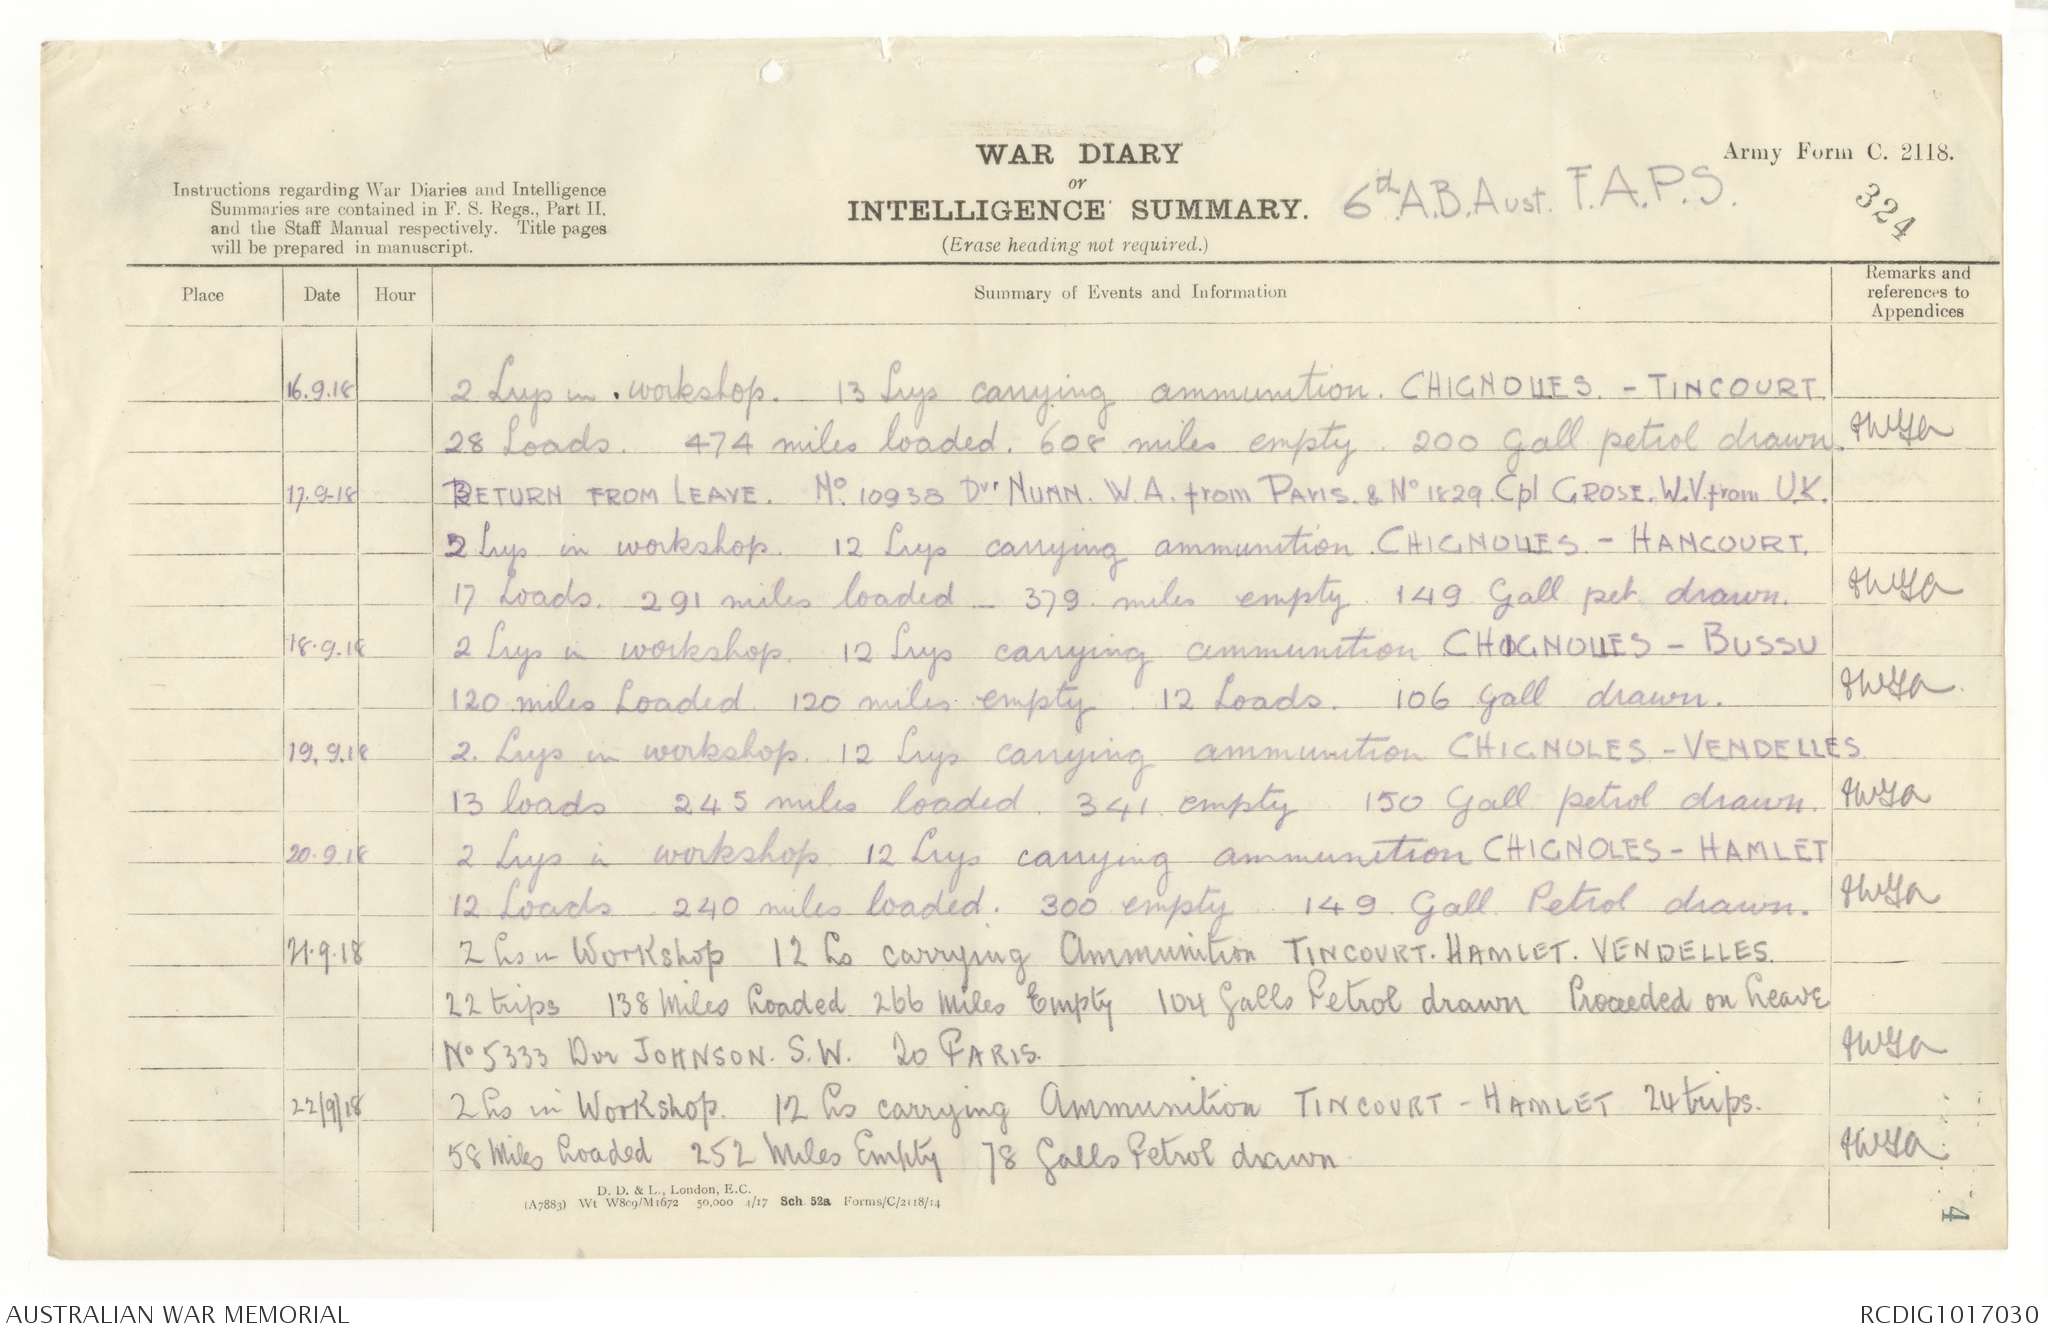 Army Form C. 2118.
WAR DIARY
or
INTELLIGENCE SUMMARY.
(Erase heading not required.)
6th A.B. Aust. F.A.P.S.
324
Instructions regarding War Diaries and Intelligence
Summaries are contained in F. S. Regs., Part II.
and the Staff Manual respectively. Title pages
will be prepared in manuscript.
Place Date Hour Summary of Events and Information Remarks and references to Appendices
16.9.18 2 Lrys in workshop. 13 Lrys carrying ammunition. CHIGNOLLES. - TINCOURT
28 Loads. 474 miles loaded. 608 miles empty. 200 Gall petrol drawn.
17.9.18 RETURN FROM LEAVE. No. 10938 Dvr NUNN. W.A. from PARIS. & No 1829 Cpl GROSE. W.V. from U.K.
2 Lrys in workshop. 12 Lrys carrying ammunition. CHIGNOLLES. - HANCOURT.
17 Loads. 291 miles loaded - 379 miles empty. 149 Gall pet. drawn.
18.9.18 2 Lrys in workshop. 12 Lrys carrying ammunition CHIGNOLLES - BUSSU
120 miles Loaded. 120 miles empty. 12 Loads. 106 Gall drawn.
19.9.18 2. Lrys in workshop. 12 Lrys carrying ammunition CHIGNOLES - VENDELLES.
13 loads 245 miles loaded. 341 empty 150 Gall petrol drawn.
20.9.18 2 Lrys in workshop 12 Lrys carrying ammunition CHIGNOLES - HAMLET
12 Loads 240 miles loaded. 300 empty 149 Gall Petrol drawn.
21.9.18 2 Ls in Workshop 12 Ls carrying Ammunition TINCOURT. HAMLET. VENDELLES.
22 trips 138 Miles Loaded 266 Miles Empty 104 Galls Petrol drawn Proceeded on Leave
No 5333 Dvr JOHNSON. S.W. To PARIS.
22/9/18 2 Ls in Workshop. 12 Ls carrying Ammunition TINCOURT - HAMLET 24 trips.
58 Miles Loaded 252 Miles Empty 78 Galls Petrol drawn
D. D. & L., London, E.C.
(A7883) Wt W809/M1672 50,000 4/17 Sch. 52a Forms/C/2118/14
4
AUSTRALIAN WAR MEMORIAL RCDIG1017030